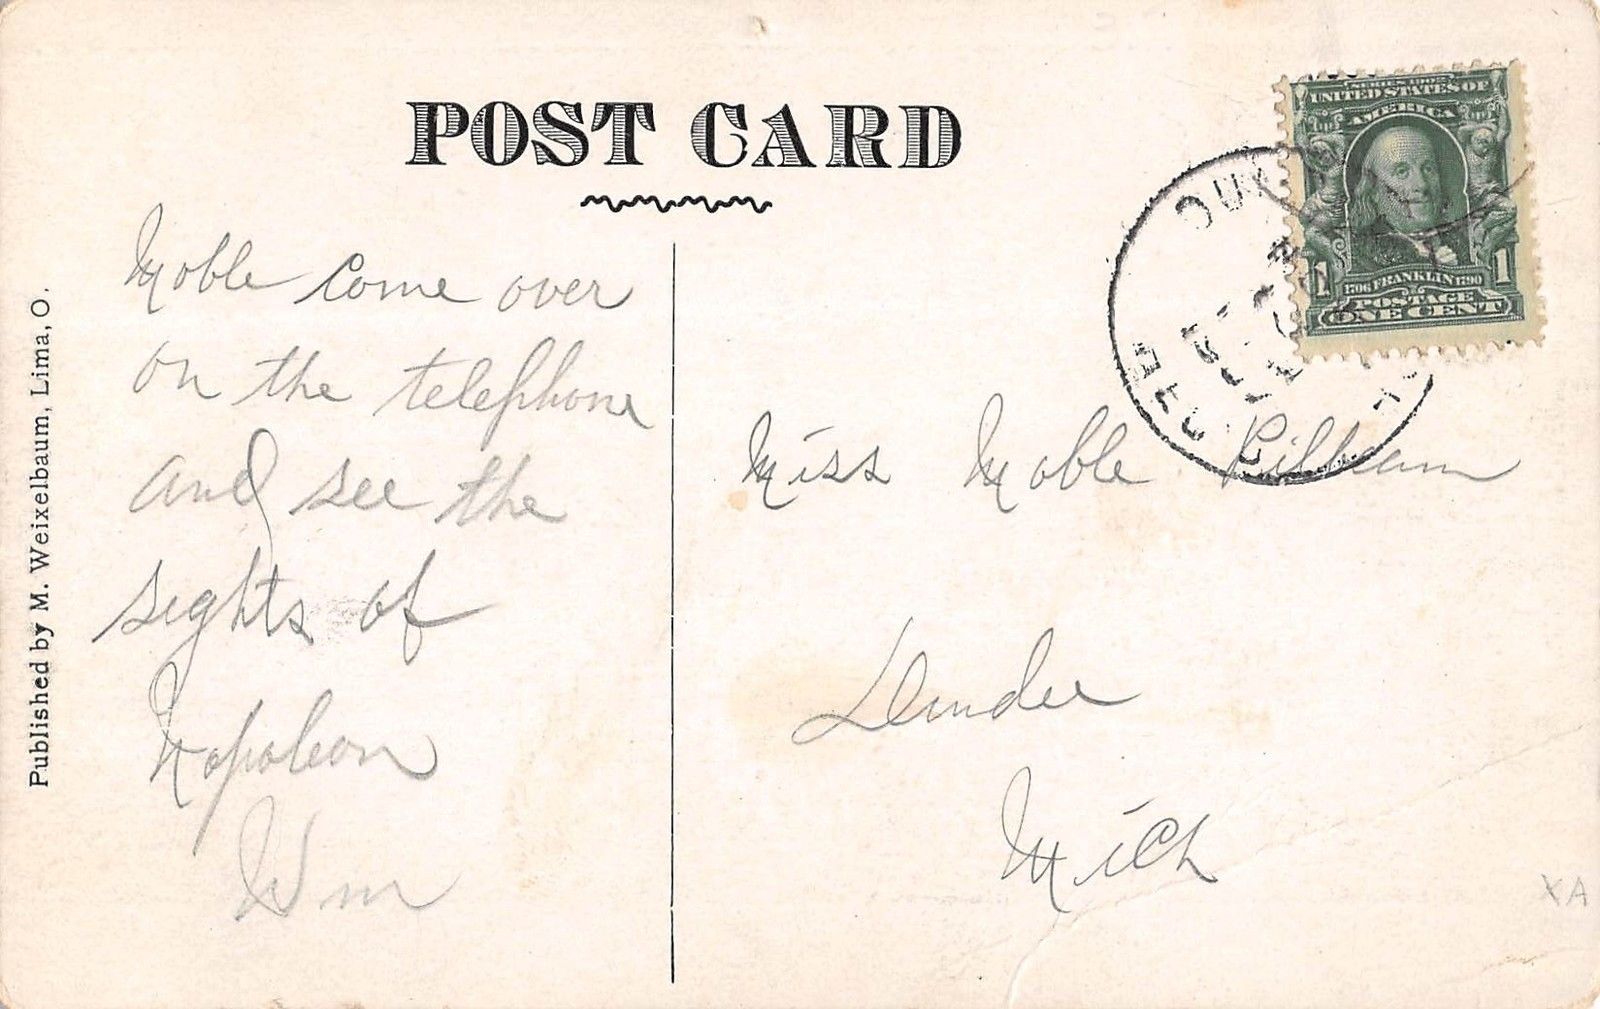 POST CARD
SERIES 1902
UNITED STATES OF
AMERICA
1 1
1706 FRANKLIN 1790
POSTAGE
ONE CENT
Noble Come over
on the telephone
and see the
sights of
Napoleon
Wm
Miss Noble
Dundee
Mich
Published by M. Weixelbaum, Lima, O.
XA